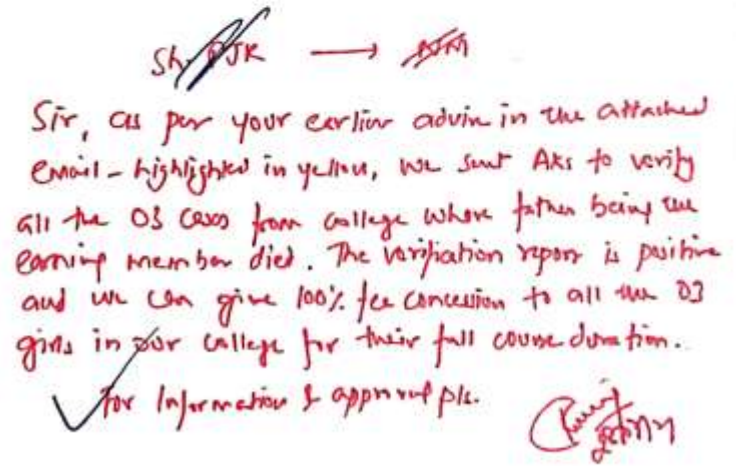 Sh. PJK → NM
Sir, as per your earlier advice in the attached
email - highlighted in yellow, we sent AKS to verify
all the 03 cases from college where father being the
earning member died. The verification report is positive
and we can give 100% fee concession to all the 03
girls in our college for their full course duration.
For Information & approval pls.